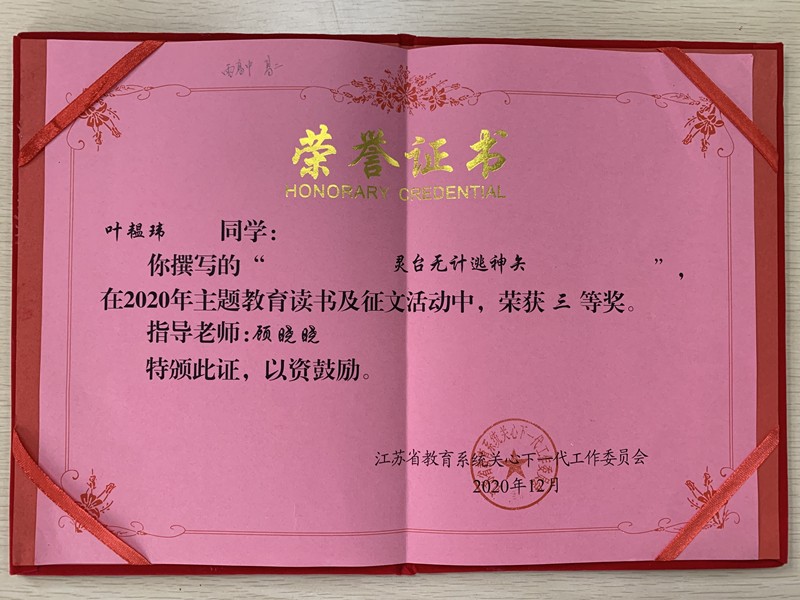 荣誉证书
HONORARY CREDENTIAL
叶韫玮 同学：
你撰写的“ 灵台无计逃神矢 ”，
在2020年主题教育读书及征文活动中，荣获 三 等奖。
指导老师：顾晓晓
特颁此证，以资鼓励。
江苏省教育系统关心下一代工作委员会
2020年12月